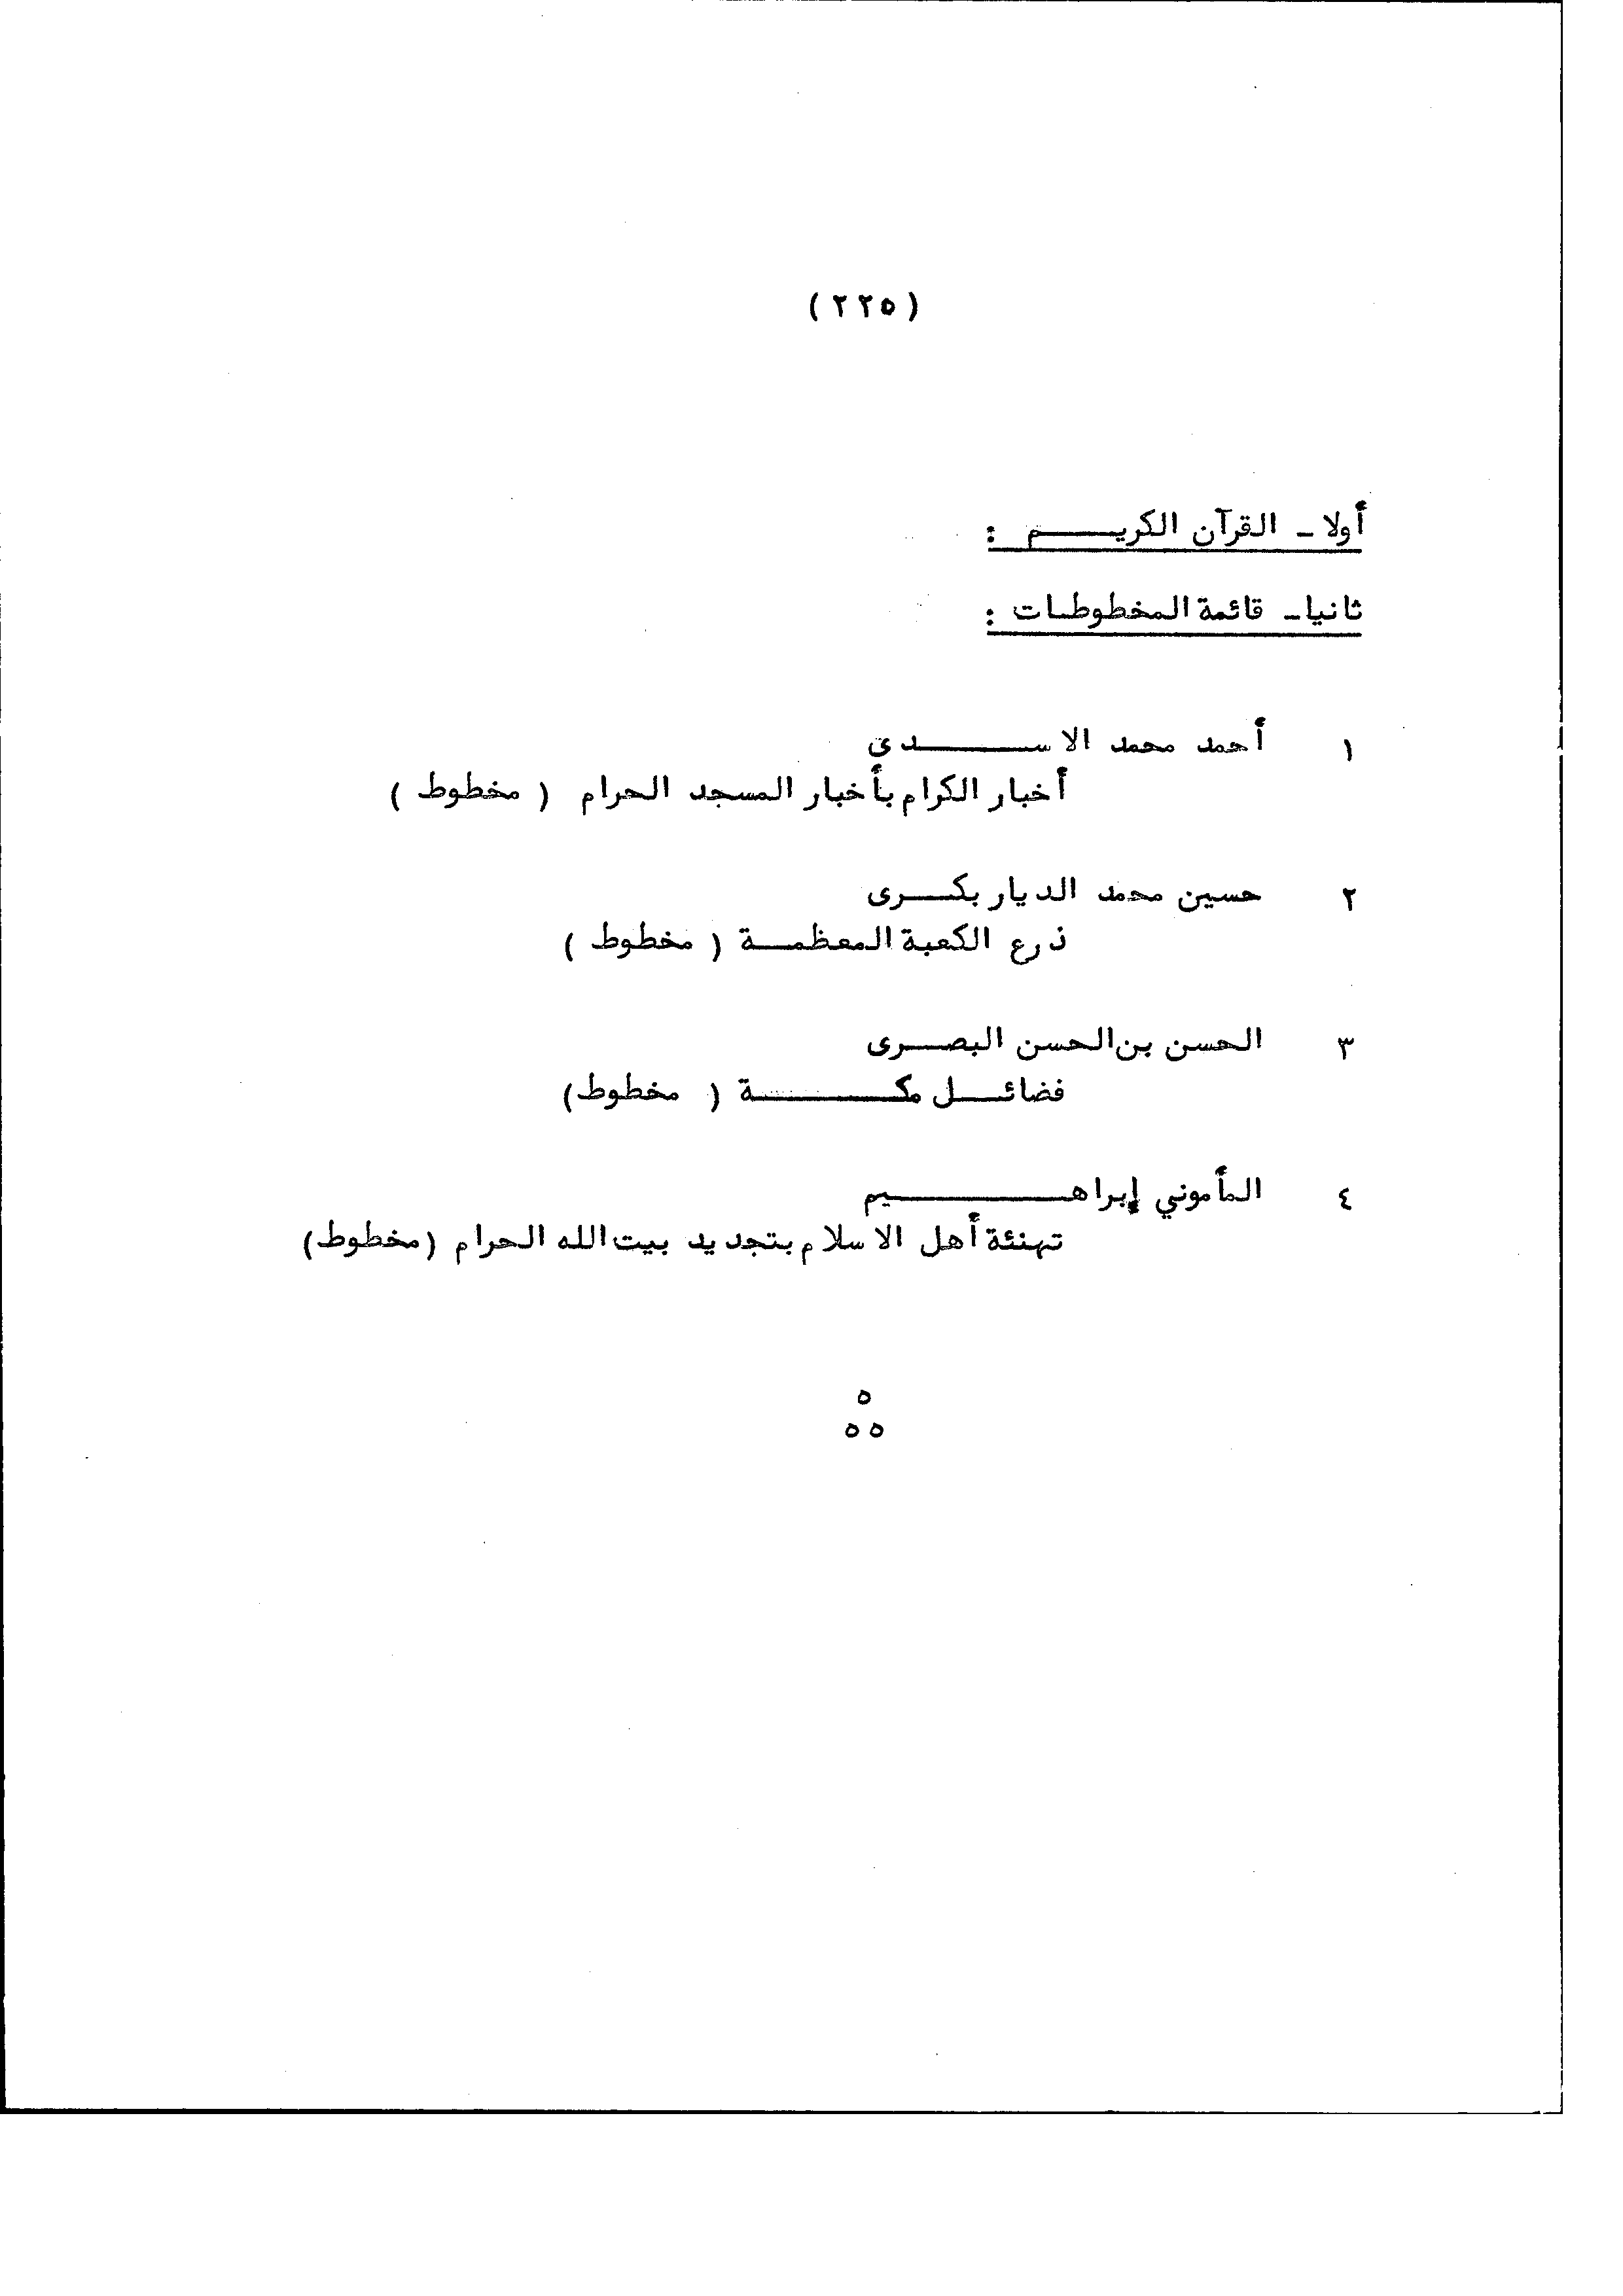 (٢٢٥)
أولا ـ القرآن الكريـــــم :
ثانيا ـ قائمة المخطوطـات :
١ أحمد محمد الاســـــــدي
أخبار الكرام بأخبار المسجد الحرام ( مخطوط )
٢ حسين محمد الديار بكـــرى
ذرع الكعبة المعظمـــة ( مخطوط )
٣ الحسن بن الحسن البصـــرى
فضائــل مكـــــــــة ( مخطوط)
٤ المأموني إبراهـــــــــــيم
تهنئة أهل الاسلام بتجديد بيت الله الحرام (مخطوط)
٥
٥ ٥